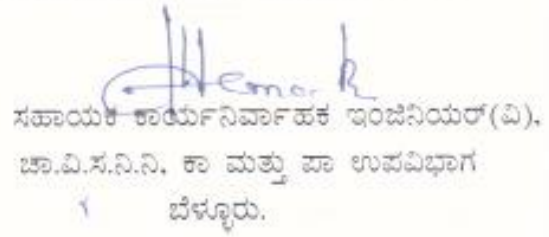 ಸಹಾಯಕ ಕಾರ್ಯನಿರ್ವಾಹಕ ಇಂಜಿನಿಯರ್(ವಿ),
ಚಾ.ವಿ.ಸ.ನಿ.ನಿ, ಕಾ ಮತ್ತು ಪಾ ಉಪವಿಭಾಗ
ಬೆಳ್ಳೂರು.